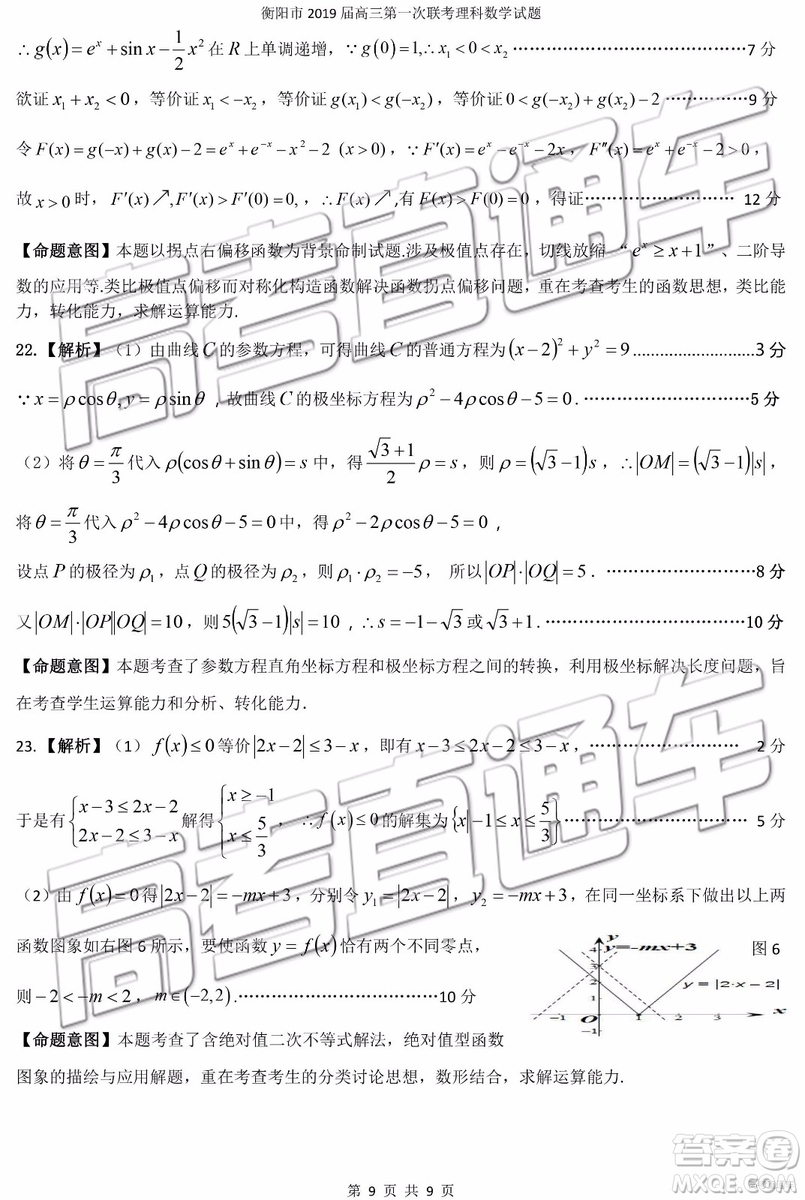 衡阳市 2019 届高三第一次联考理科数学试题
∴g(x)=eˣ+sin x−(1/2)x² 在 R 上单调递增，∵g(0)=1,∴x₁<0<x₂ ……………………………………7 分
欲证 x₁+x₂<0，等价证 x₁<−x₂，等价证 g(x₁)<g(−x₂)，等价证 0<g(−x₂)+g(x₂)−2 ……………9 分
令 F(x)=g(−x)+g(x)−2=eˣ+e⁻ˣ−x²−2 (x>0)，∵F′(x)=eˣ−e⁻ˣ−2x，F″(x)=eˣ+e⁻ˣ−2>0，
故 x>0 时，F′(x)↗,F′(x)>F′(0)=0,，∴F(x)↗,有 F(x)>F(0)=0，得证…………………… 12 分
【命题意图】本题以拐点右偏移函数为背景命制试题.涉及极值点存在，切线放缩“eˣ≥x+1”、二阶导
数的应用等.类比极值点偏移而对称化构造函数解决函数拐点偏移问题，重在考查考生的函数思想，类比能
力，转化能力，求解运算能力.
22.【解析】（1）由曲线 C 的参数方程，可得曲线 C 的普通方程为 (x−2)²+y²=9...........................3 分
∵x=ρcosθ,y=ρsinθ，故曲线 C 的极坐标方程为 ρ²−4ρcosθ−5=0.…………………………5 分
（2）将 θ=π/3 代入 ρ(cosθ+sinθ)=s 中，得 (√3+1)/2 ρ=s，则 ρ=(√3−1)s，∴|OM|=(√3−1)|s|，
将 θ=π/3 代入 ρ²−4ρcosθ−5=0中，得 ρ²−2ρcosθ−5=0，
设点 P 的极径为 ρ₁，点 Q 的极径为 ρ₂，则 ρ₁·ρ₂=−5， 所以 |OP|·|OQ|=5．………………………8 分
又 |OM|·|OP||OQ|=10，则 5(√3−1)|s|=10，∴s=−1−√3 或 √3+1.……………………………10 分
【命题意图】本题考查了参数方程直角坐标方程和极坐标方程之间的转换，利用极坐标解决长度问题，旨
在考查学生运算能力和分析、转化能力.
23.【解析】（1）f(x)≤0 等价 |2x−2|≤3−x，即有 x−3≤2x−2≤3−x，………………………… 2 分
于是有 {x−3≤2x−2 2x−2≤3−x 解得 {x≥−1 x≤5/3，∴f(x)≤0 的解集为 {x|−1≤x≤5/3}………………………… 5 分
（2）由 f(x)=0 得 |2x−2|=−mx+3，分别令 y₁=|2x−2|，y₂=−mx+3，在同一坐标系下做出以上两
函数图象如右图 6 所示，要使函数 y=f(x) 恰有两个不同零点，
则 −2<−m<2，m∈(−2,2).……………………………10 分
y
y=-mx+3
图 6
y=|2·x−2|
4
3
2
1
−1
−1
O
1
2
3
x
【命题意图】本题考查了含绝对值二次不等式解法，绝对值型函数
图象的描绘与应用解题，重在考查考生的分类讨论思想，数形结合，求解运算能力.
第 9 页 共 9 页
高考直通车
高考直通车
答案圈
MXQE.COM